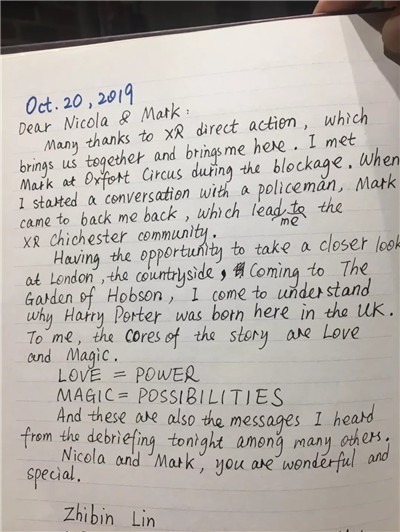 Oct. 20, 2019
Dear Nicola & Mark:
Many thanks to XR direct action, which
brings us together and brings me here. I met
Mark at Oxfort Circus during the blockage. When
I started a conversation with a policeman, Mark
came to back me back, which lead me to the
XR Chichester community.
Having the opportunity to take a closer look
at London, the countryside, Coming to The
Garden of Hobson, I come to understand
why Harry Porter was born here in the UK.
To me, the cores of the story are Love
and Magic.
LOVE = POWER
MAGIC = POSSIBILITIES
And these are also the messages I heard
from the debriefing tonight among many others.
Nicola and Mark, you are wonderful and
special.
Zhibin Lin